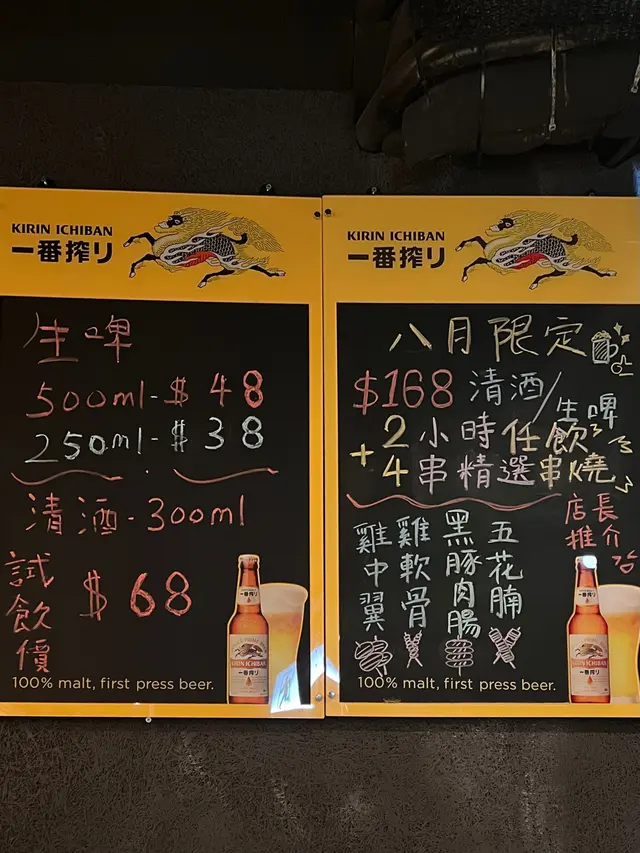 KIRIN ICHIBAN
一番搾り
生啤
500ml-$48
250ml-$38
清酒-300ml
試飲價
$68
一番搾り
KIRIN ICHIBAN
一番搾り
100% malt, first press beer.
KIRIN ICHIBAN
一番搾り
八月限定
$168 清酒/生啤
2小時任飲
+4串精選串燒
店長推介
雞中翼
雞軟骨
黑豚肉腸
五花腩
一番搾り
KIRIN ICHIBAN
一番搾り
100% malt, first press beer.